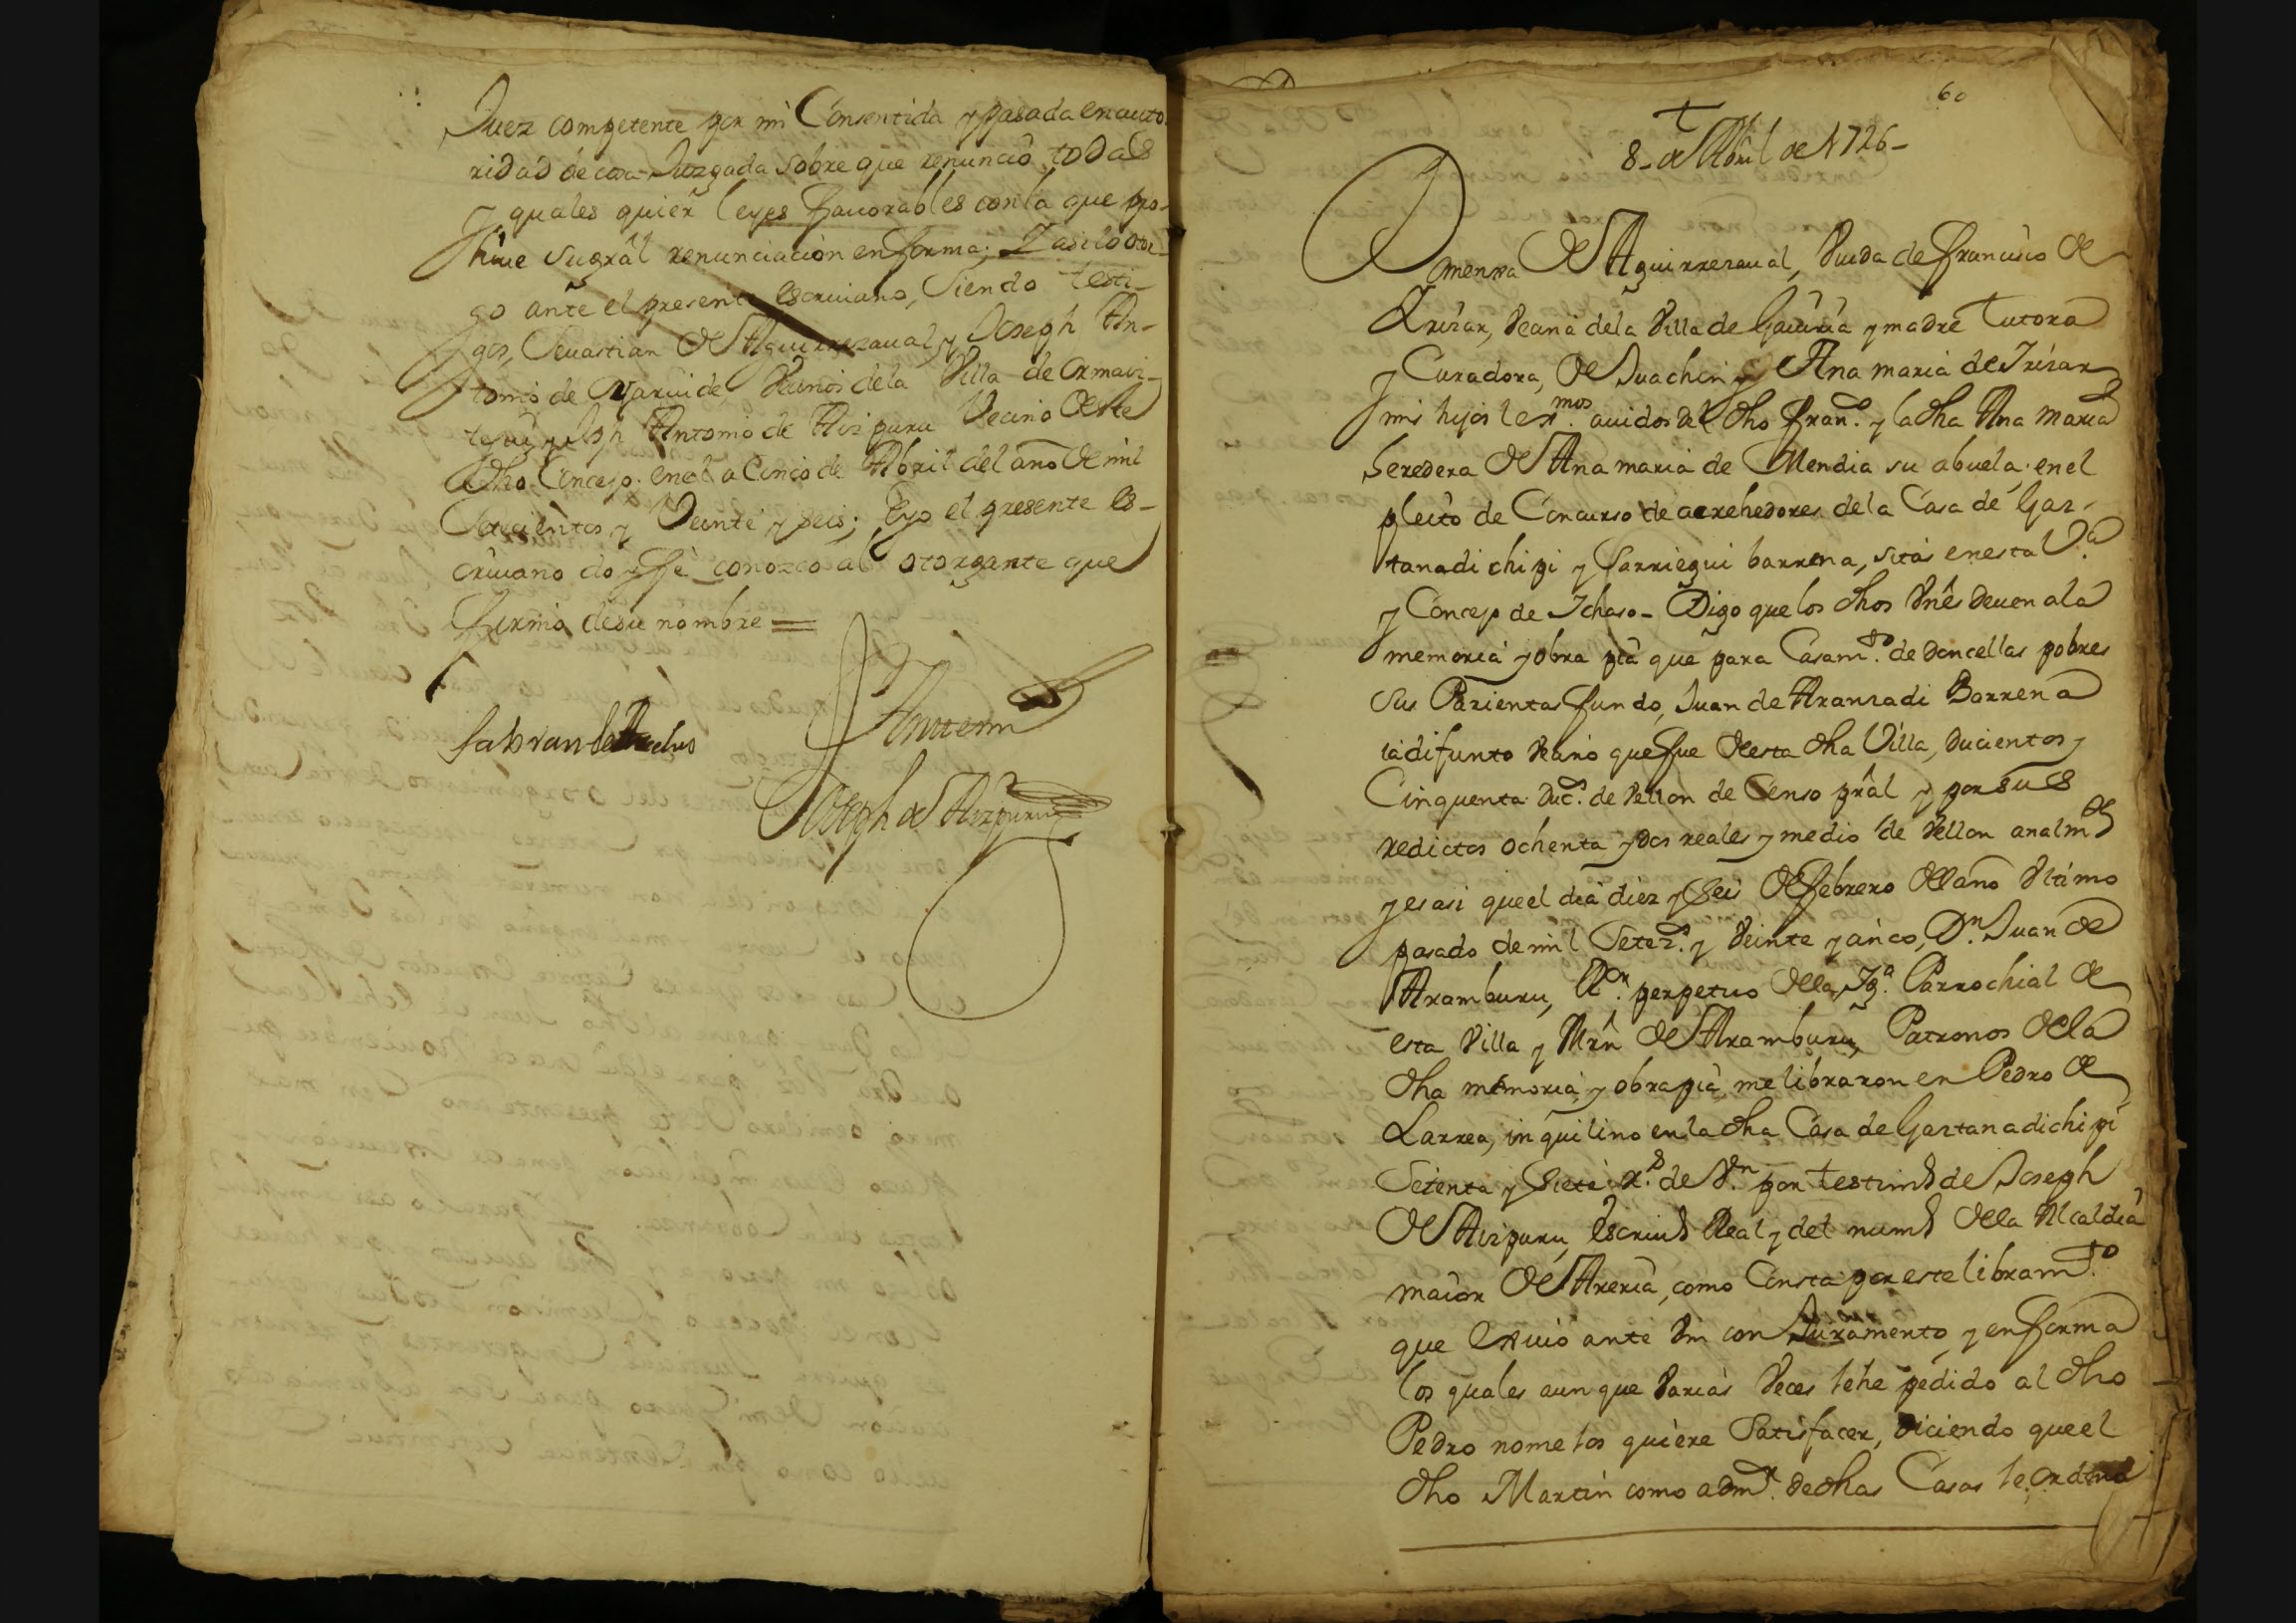 Juez competente por mi Consentida y pasada en auto
ridad de cosa Juzgada sobre que renunció todas
y quales quier leyes favorables con la que pro-
hiue su grâl renunciacion en forma; Y asi lo otor-
go ante el presente escriuano, siendo testi-
gos, Seuastian de Aguirrezaual, y Joseph An-
tonio de Vecinos dela Villa de Ormaiz-
tegui, y Joseph Antonio de Aizpuru Vecino deste
dho Concejo. en el a Cinco de Abril del año de mil
Setecientos y Veinte y seis; E yo el presente es-
criuano doy feè conozco al otorgante que
firmò de su nombre =
Antemi
Joseph de Aizpuru
60
8 de Abril de 1726
Domenxa de Aguirrezaual, Viuda de Francisco de
Yrizar, Vecina dela Villa de Gauiria y madre Tutora
y Curadora, de Juachin y Ana maria de Yrizar
mis hijos lexmos. auidos del dho Frano. y la dha Ana Maria
heredera de Ana maria de Mendia su abuela, en el
pleito de Concurso de acrehedores dela Casa de Gaz-
tanadi chipi y Sarriegui barrena, sitas en esta Va.
y Concejo de Ichaso - Digo que los dhos Vnês deuen ala
memoria y obra pia que para Casamto. de doncellas pobres
sus Parientas fundo, Juan de Aranzadi Barrena
ia difunto Vecino que fue desta dha Villa, ducientos y
Cinquenta ducs. de Vellon de Censo prâl y por sus
redictos ochenta y dos reales y medio de Vellon analmte
y es asi que el dia diez y seis de Febrero del año Vltimo
pasado de mil Setezs. y Veinte y cinco, Dn. Juan de
Aramburu, Ror. perpetuo dela Iga. Parrochial de
esta Villa y Mrn de Aramburu, Patronos dela
dha memoria, y obra pia, me libraron en Pedro de
Larrea, inquilino en la dha Casa de Gaztanadichipi
Setenta y Siete rs. de Vn. por testimo de Joseph
de Aizpuru, escriuo Real y del numo dela Alcaldia
maior de Areria, como Consta por este libramto.
que exiuo ante Vm con Juramento, y en forma
los quales aunque Varias Veces le he pedido al dho
Pedro no me los quiere Satisfacer, diciendo que el
dho Martin como admr. de dhas Casas le ordena